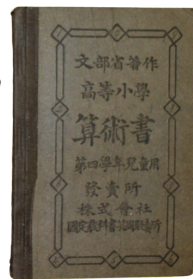 文部省著作
高等小學
算術書
第四學年兒童用
發賣所
株式會社
國定敎科書共同販賣所